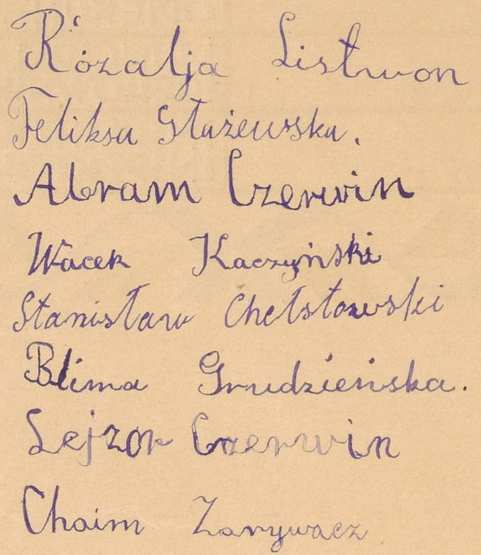 Rózalja Listwon
Feliksa Stażewska.
Abram Czerwin
Wacek Kaczyński
Stanisław Chełstowski
Blima Grudzieńska.
Lejzor Czerwin
Chaim Zarywacz